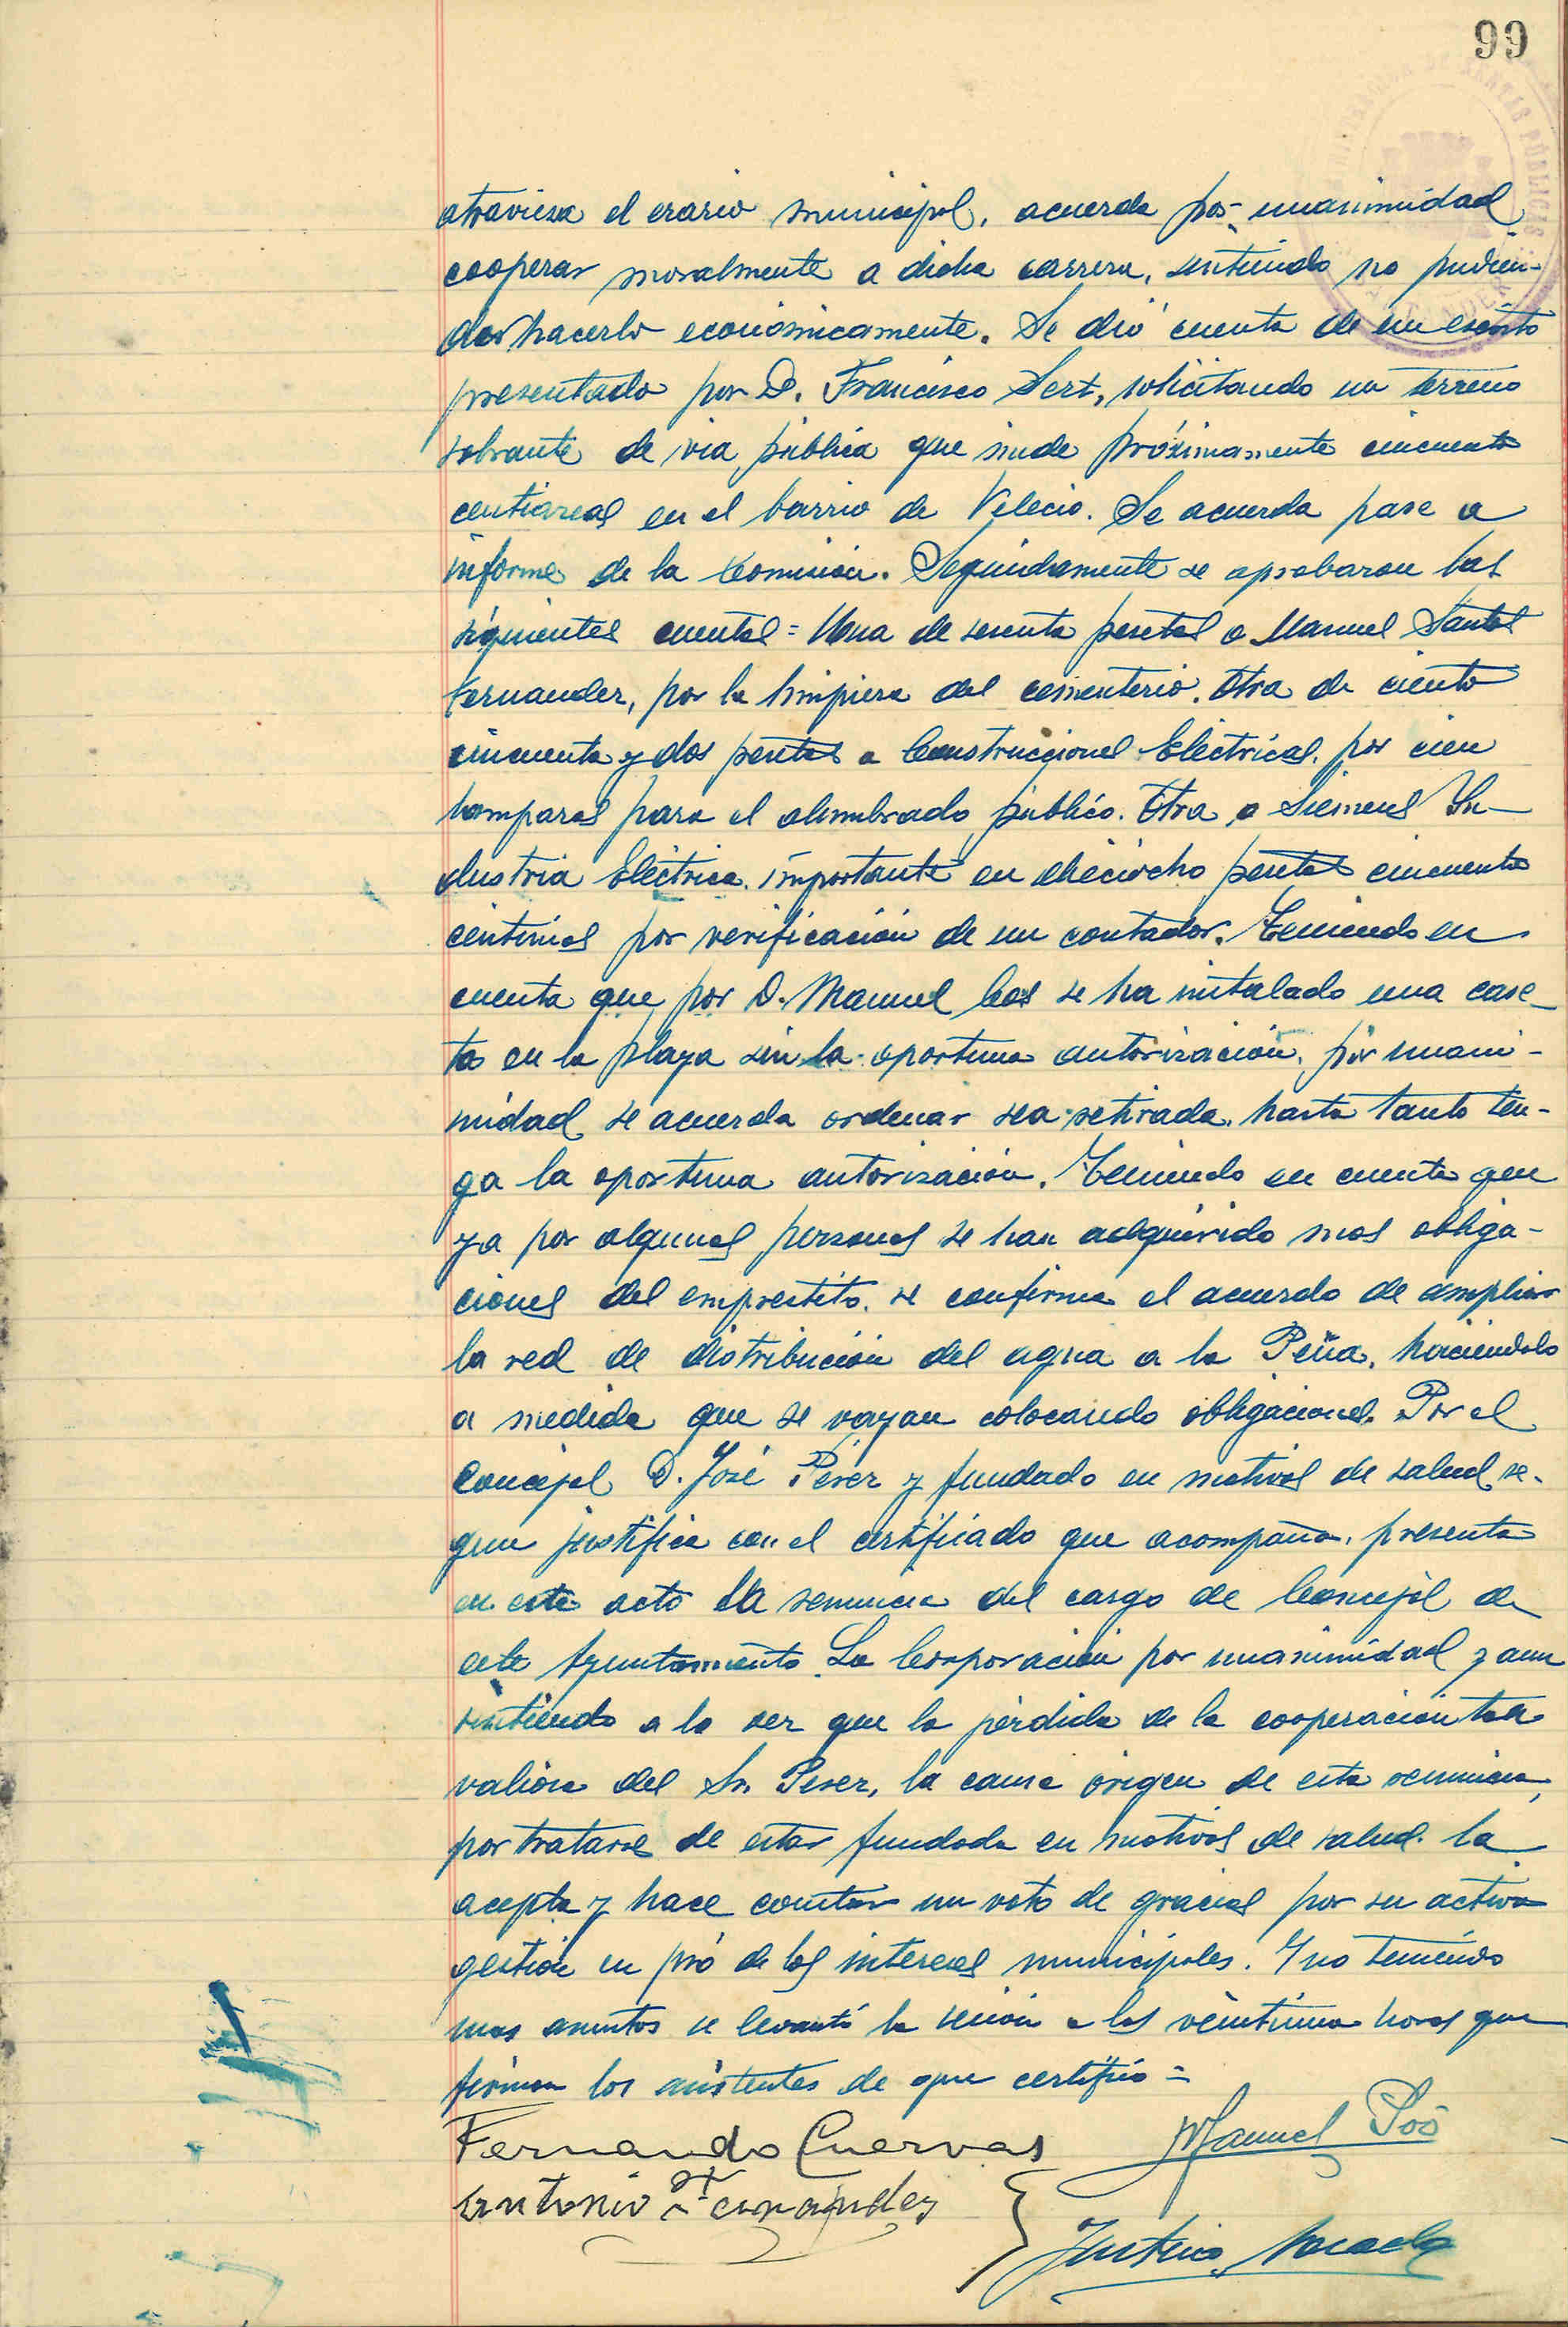 99
atraviesa el erario municipal, acuerda por unanimidad
cooperar moralmente a dicha carrera, sintiendo no pudien-
dor hacerlo económicamente. Se dió cuenta de un escrito
presentado por D. Francisco Sert, solicitando un terreno
sobrante de via pública que mide próximamente cincuenta
centiareas en el barrio de Velecio. Se acuerda pase a
informe de la Comisión. Seguidamente se aprobaron las
siguientes cuentas = Una de sesenta pesetas a Manuel Santos
Fernandez, por la limpieza del cementerio. Otra de ciento
cincuenta y dos pesetas a Construcciones Eléctricas, por cien
lamparas para el alumbrado público. Otra a Siemens In-
dustria Eléctrica, importante en dieciocho pesetas cincuenta
centimos por verificación de un contador. Teniendo en
cuenta que por D. Manuel Cos se ha instalado una case-
ta en la plaza sin la oportuna autorización, por unani-
midad se acuerda ordenar sea retirada, hasta tanto ten-
ga la oportuna autorización. Teniendo en cuenta que
ya por algunas personas se han adquirido mas obliga-
ciones del emprestito, se confirma el acuerdo de ampliar
la red de distribución del agua a la Peña, haciendolo
a medida que se vayan colocando obligaciones. Por el
Concejal D. José Pérez y fundado en motivos de salud se-
gun justifica con el certificado que acompaña, presenta
en este acto la renuncia del cargo de Concejal de
este Ayuntamiento. La Corporación por unanimidad y aun
sintiendo a la vez que la pérdida de la cooperación tan
valiosa del Sr. Perez, la causa origen de esta renuncia,
por tratarse de estar fundada en motivos de salud. la
acepta y hace constar un voto de gracias por su activa
gestión en pró de los intereses municipales. Y no teniendo
mas asuntos se levantó la sesión a las veintiuna horas que
firman los asistentes de que certifico =
Fernando Cuervas Manuel Poó
Antonio Fernández